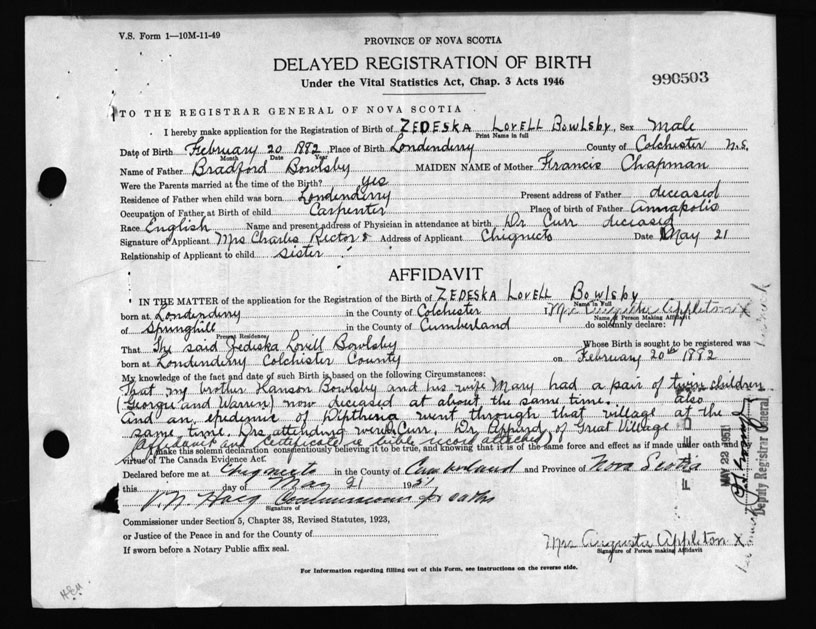 V.S. Form 1—10M-11-49
PROVINCE OF NOVA SCOTIA
DELAYED REGISTRATION OF BIRTH
Under the Vital Statistics Act, Chap. 3 Acts 1946
990503
TO THE REGISTRAR GENERAL OF NOVA SCOTIA
I hereby make application for the Registration of Birth of ZEDESKA LOVELL BOWLSBY, Sex Male
Print Name in full
Date of Birth February 20 1882 Place of Birth Londenderry County of Colchester N.S.
Month Date Year
Name of Father Bradford Bowlsby MAIDEN NAME of Mother Francis Chapman
Were the Parents married at the time of the Birth? yes
Residence of Father when child was born Londenderry Present address of Father deceased
Occupation of Father at Birth of child Carpenter Place of birth of Father Annapolis
Race English Name and present address of Physician in attendance at birth Dr Curr diceased
Signature of Applicant Mrs Charles Rector Address of Applicant Chignecto Date May 21
Relationship of Applicant to child sister
AFFIDAVIT
IN THE MATTER of the application for the Registration of the Birth of ZEDESKA LOVELL BOWLSBY
Name in Full
born at Londenderry in the County of Colchester I, Mrs Augusta Appleton X
Name of Person Making Affidavit
of Springhill in the County of Cumberland do solemnly declare:
Present Residence
That The said Zediska Lovell Bowlsby Whose Birth is sought to be registered was
born at Londenderry Colchister County on February 20th 1882
My knowledge of the fact and date of such Birth is based on the following Circumstances:
That my brother Hanson Bowlsby and his wife Mary had a pair of twin children
(Georgie and Warren) now deceased at about the same time. also
and an epidemic of Diptheria went through that village at the
same time. Drs attending were Curr. Dr. of Great Village
(Affidavit and Certificate in bible record attached)
I make this solemn declaration conscientiously believing it to be true, and knowing that it is of the same force and effect as if made under oath and by
virtue of The Canada Evidence Act.
Declared before me at Chignecto in the County of Cumberland and Province of Nova Scotia
this day of May 21 1951
Commissioner for oaths
Signature of
Commissioner under Section 5, Chapter 38, Revised Statutes, 1923,
or Justice of the Peace in and for the County of
If sworn before a Notary Public affix seal.
Mrs Augusta Appleton X
Signature of Person making Affidavit
For Information regarding filling out of this Form, see instructions on the reverse side.
FILED
MAY 22 1951
Deputy Registrar General